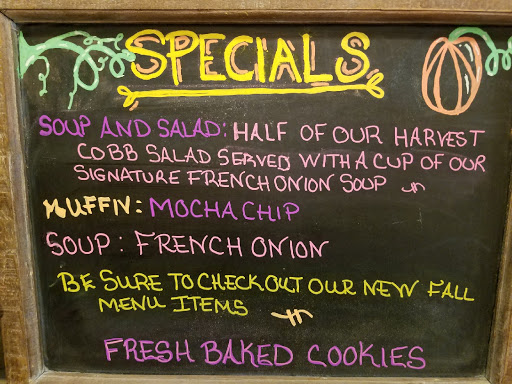 SPECIALS
SOUP AND SALAD: HALF OF OUR HARVEST
COBB SALAD SERVED WITH A CUP OF OUR
SIGNATURE FRENCH ONION SOUP
MUFFIN: MOCHA CHIP
SOUP: FRENCH ONION
BE SURE TO CHECK OUT OUR NEW FALL
MENU ITEMS
FRESH BAKED COOKIES